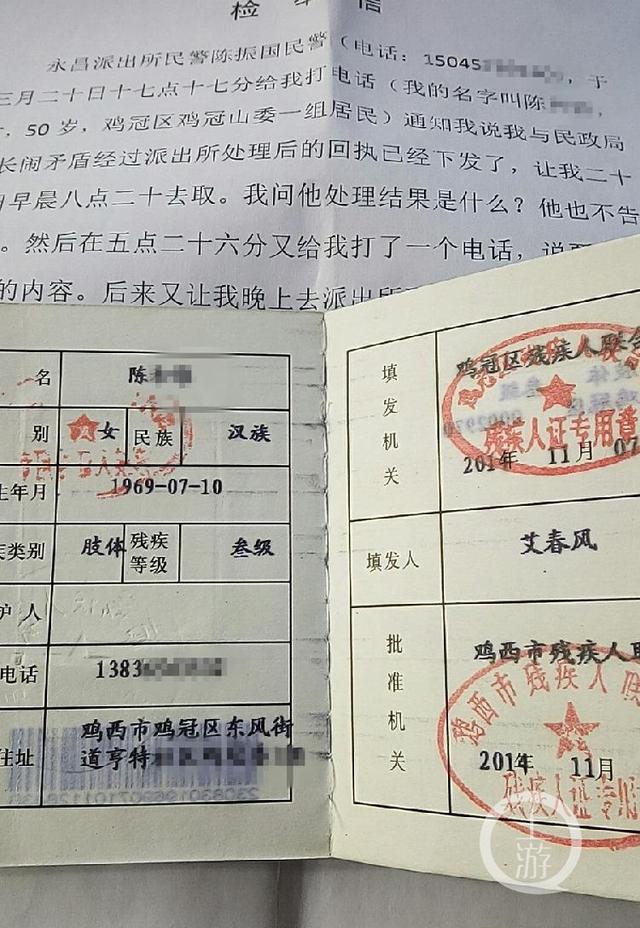 检 举 信
永昌派出所民警陈振国民警（电话：15045
三月二十日十七点十七分给我打电话（我的名字叫陈
，50岁，鸡冠区鸡冠山委一组居民）通知我说我与民政局
长闹矛盾经过派出所处理后的回执已经下发了，让我二十
日早晨八点二十去取。我问他处理结果是什么？他也不告
。然后在五点二十六分又给我打了一个电话，说
的内容。后来又让我晚上去派出所
名 陈
别 女 民族 汉族
生年月 1969-07-10
类别 肢体 残疾等级 叁级
护人
电话 1383
住址 鸡西市鸡冠区东风街
道亨特
填发机关 鸡冠区残疾人联合
残疾人证专用章
2014年 11月 07
填发人 艾春风
批准机关 鸡西市残疾人联
鸡西市残疾人联
2014年 11月
残疾人证
上游